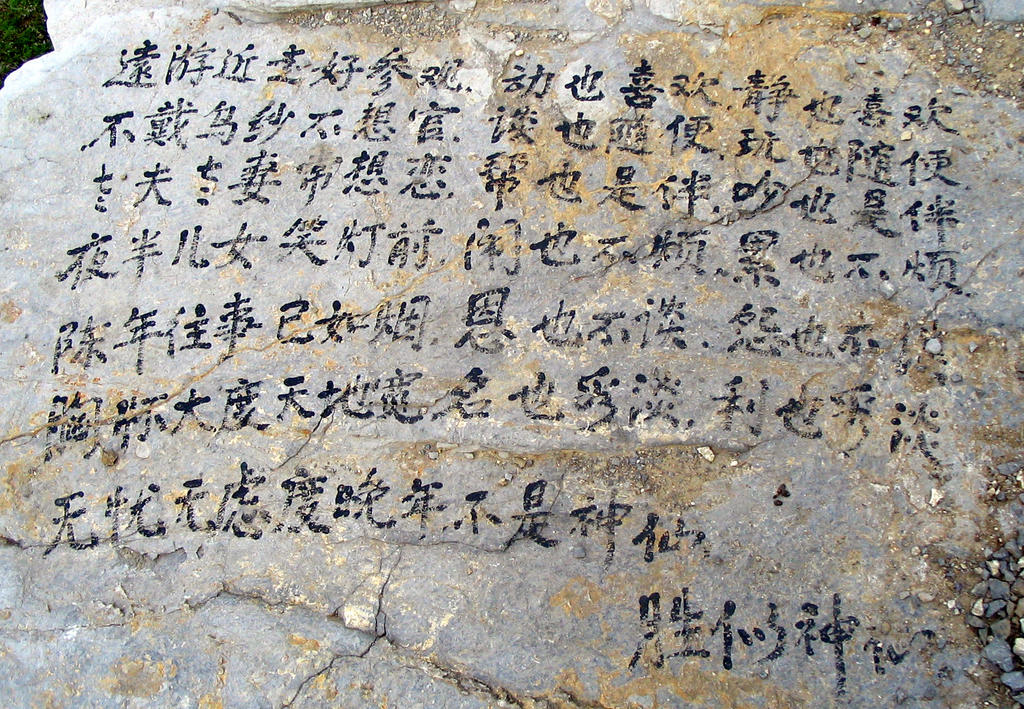 遠游近走好参观.动也喜欢.静也喜欢
不戴乌纱不想官.谈也随便.玩也随便
老夫老妻常想恋.帮也是伴.吵也是伴
夜半儿女笑灯前.闹也不烦.累也不烦.
陈年往事已如烟.恩也不谈.怨也不
胸怀大度天地宽.名也看淡.利也看淡
无忧无虑度晚年.不是神仙.
胜似神仙